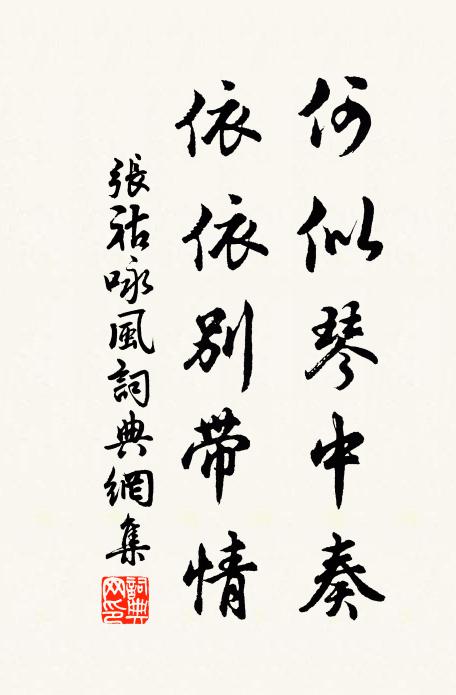 何似琴中奏
依依別帶情
張祜咏風詞典網集
詞典網印